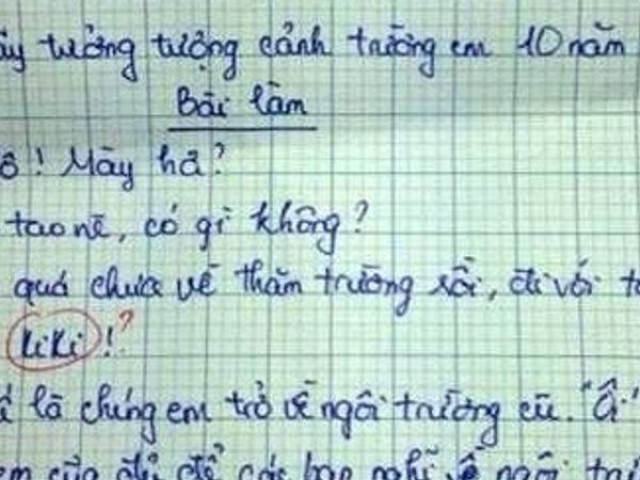 ãy tưởng tượng cảnh trường em 10 năm
Bài làm
ô! Mày hả?
tao nè, có gì không?
quá chưa về thăm trường rồi, đi với t
KiKi!?
là chúng em trở về ngôi trường cũ. "Ô"
em của để các bạn nghĩ về ngôi